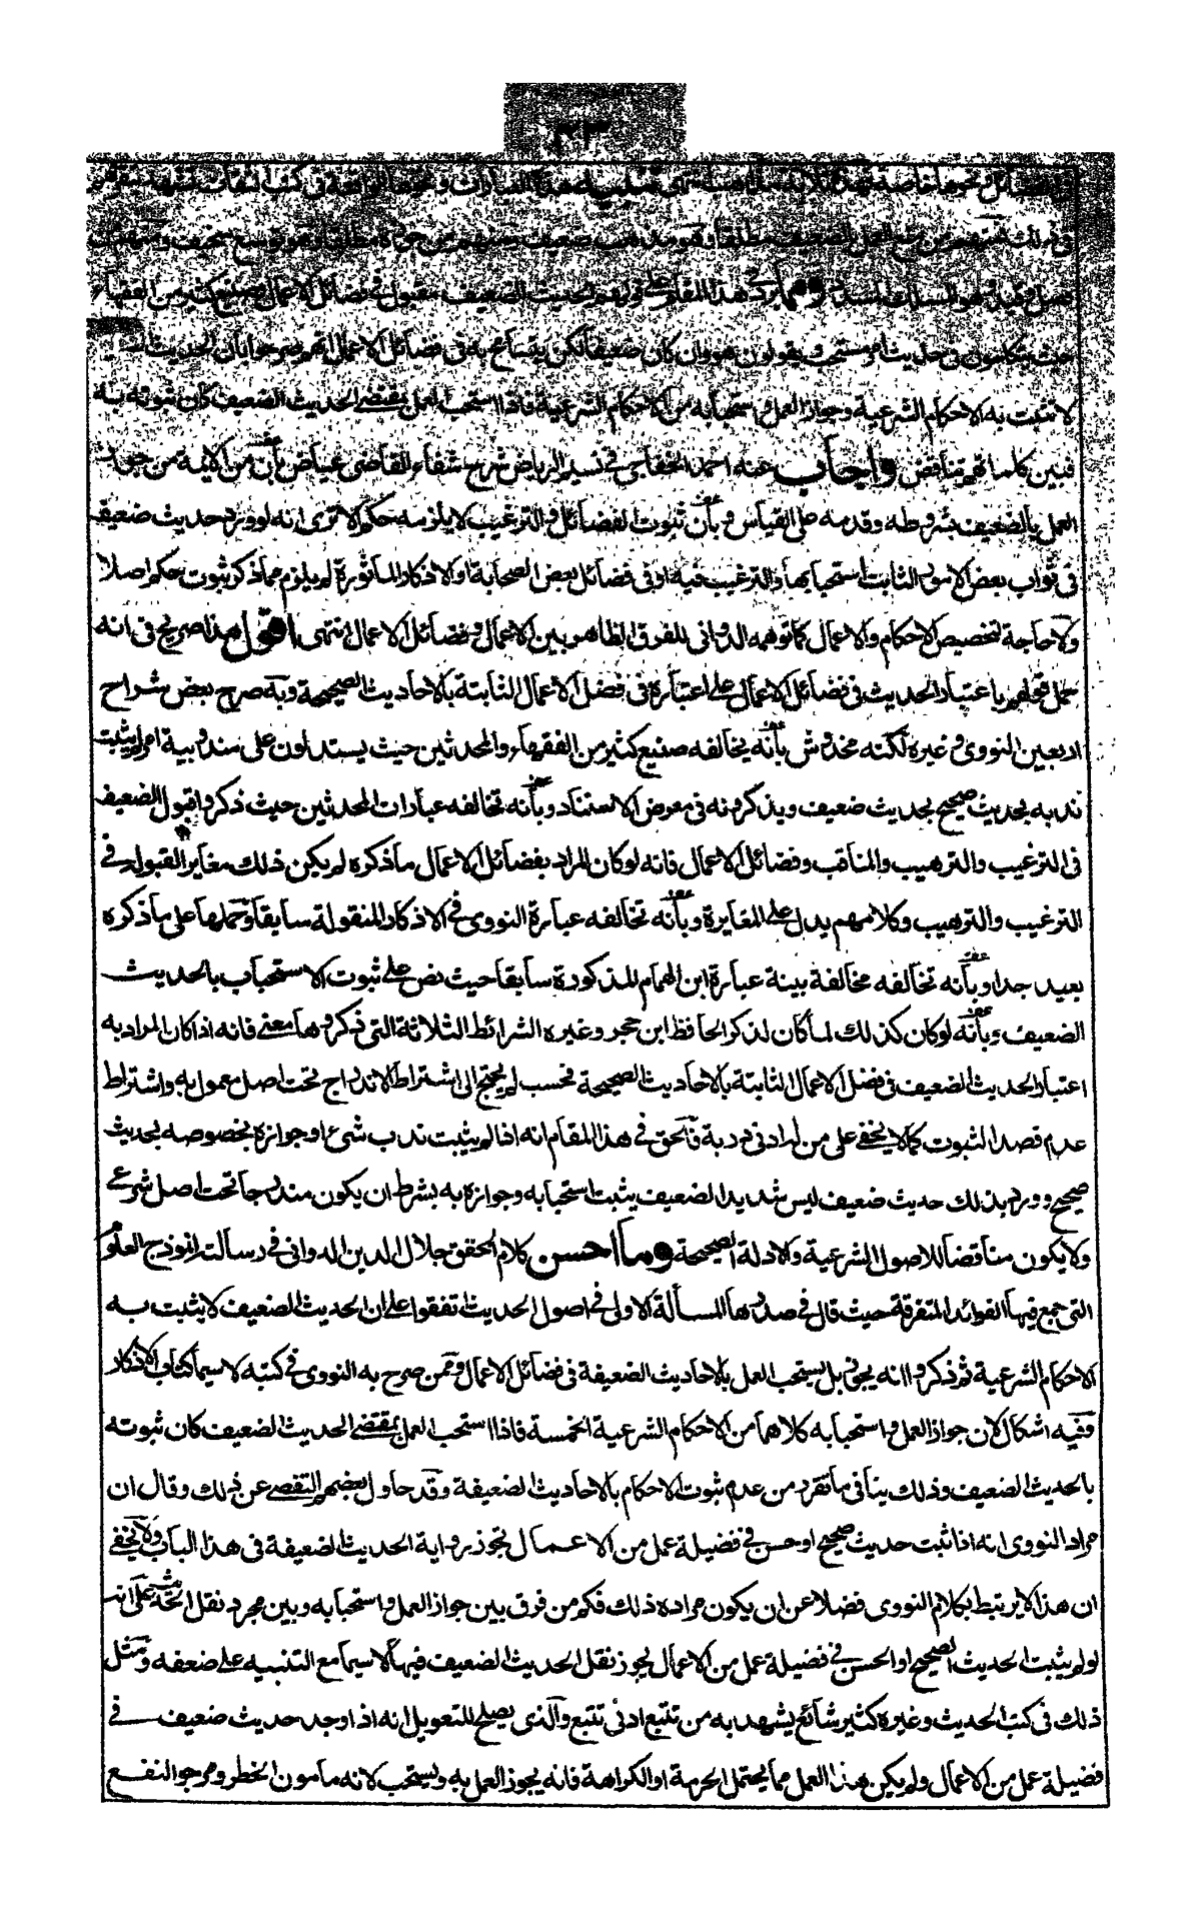 ٣٣
في ذلك فمنهم من منع العمل بالضعيف مطلقا وهو مذهب ضعيف ومنهم من جوزه مطلقا وهو توسع سخيف ومنهم من
فصل وقيد وهو المسلك المسدد ومما يرد في هذا المقام على قولهم الحديث الضعيف مقبول في فضائل الاعمال صنيع كثير من الفقهاء
حيث يتكلمون في حديث امر مستحب ويقولون هو وان كان ضعيفا لكن يتسامح به في فضائل الاعمال انهم صرحوا بان الحديث الضعيف
لا تثبت به الاحكام الشرعية وجواز العمل واستحبابه من الاحكام الشرعية فاذا استحب العمل بمقتضى الحديث الضعيف كان ثبوته به
فبين كلماتهم تناقض واجاب عنه احمد الخفاجي في نسيم الرياض شرح شفاء القاضي عياض بأن من الائمة من جوز
العمل بالضعيف بشروطه وقدمه على القياس وبأن ثبوت الفضائل والترغيب لا يلزمه حكم الا ترى انه لو ورد حديث ضعيف
في ثواب بعض الامور الثابت استحبابها والترغيب فيه او في فضائل بعض الصحابة او الاذكار المأثورة لم يلزم مما ذكر ثبوت حكم اصلا
ولا حاجة لتخصيص الاحكام والاعمال كما توهمه الدواني للفرق الظاهر بين الاعمال وفضائل الاعمال انتهى اقول هذا صريح في انه
حمل قولهم باعتبار الحديث في فضائل الاعمال على اعتباره في فضل الاعمال الثابتة بالاحاديث الصحيحة وبه صرح بعض شراح
اربعين النووي وغيره لكنه مخدوش بأنه يخالفه صنيع كثير من الفقهاء والمحدثين حيث يستدلون على مندوبية امر لم يثبت
ندبه بحديث صحيح بحديث ضعيف ويذكرونه في معرض الاستناد وبأنه تخالفه عبارات المحدثين حيث ذكروا قبول الضعيف
في الترغيب والترهيب والمناقب وفضائل الاعمال فانه لو كان المراد بفضائل الاعمال ما ذكره لم يكن ذلك مغاير القبوله في
الترغيب والترهيب وكلامهم يدل على المغايرة وبأنه تخالفه عبارة النووي في الاذكار المنقولة سابقا وحملها على ما ذكره
بعيد جدا وبأنه تخالفه مخالفة بينة عبارة ابن الهمام المذكورة سابقا حيث نص على ثبوت الاستحباب بالحديث
الضعيف وبأنه لو كان كذلك لما كان لذكر الحافظ ابن حجر وغيره الشرائط الثلاثة التي ذكروها معنى فانه اذا كان المراد به
اعتبار الحديث الضعيف في فضل الاعمال الثابتة بالاحاديث الصحيحة فحسب لم يحتج الى اشتراط الاندراج تحت اصل معمول به واشتراط
عدم قصد الثبوت كما لا يخفى على من له ادنى دربة فالحق في هذا المقام انه اذا لم يثبت ندب شئ او جوازه بخصوصه بحديث
صحيح وورد بذلك حديث ضعيف ليس شديد الضعيف يثبت استحبابه وجوازه به بشرط ان يكون مندرجا تحت اصل شرعي
ولا يكون مناقضا للاصول الشرعية والادلة الصحيحة وما احسن كلام المحقق جلال الدين الدواني في رسالته انموذج العلوم
التي جمع فيها الفوائد المتفرقة حيث قال في صدرها المسألة الاولى في اصول الحديث اتفقوا على ان الحديث الضعيف لا يثبت به
الاحكام الشرعية ثم ذكروا انه يجوز بل يستحب العمل بالاحاديث الضعيفة في فضائل الاعمال وممن صرح به النووي في كتبه لا سيما كتاب الاذكار
وفيه اشكال لان جواز العمل واستحبابه كلاهما من الاحكام الشرعية الخمسة فاذا استحب العمل بمقتضى الحديث الضعيف كان ثبوته
بالحديث الضعيف وذلك ينافي ما تقرر من عدم ثبوت الاحكام بالاحاديث الضعيفة وقد حاول بعضهم التفصي عن ذلك وقال ان
مراد النووي انه اذا ثبت حديث صحيح او حسن في فضيلة عمل من الاعمال تجوز رواية الحديث الضعيفة في هذا الباب ولا يخفى
ان هذا لا يرتبط بكلام النووي فضلا عن ان يكون مراده ذلك فكم من فرق بين جواز العمل واستحبابه وبين مجرد نقل الحديث على انه
لو لم يثبت الحديث الصحيح او الحسن في فضيلة عمل من الاعمال يجوز نقل الحديث الضعيف فيها لا سيما مع التنبيه على ضعفه ومثل
ذلك في كتب الحديث وغيره كثير شائع يشهد به من تتبع ادنى تتبع والذي يصلح للتعويل انه اذا وجد حديث ضعيف في
فضيلة عمل من الاعمال ولم يكن هذا العمل مما يحتمل الحرمة او الكراهة فانه يجوز العمل به ويستحب لانه مأمون الخطر ومرجو النفع